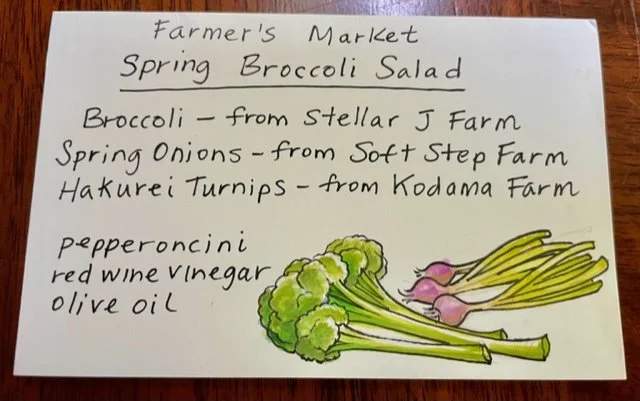 Farmer's Market
Spring Broccoli Salad
Broccoli – from Stellar J Farm
Spring Onions – from Soft Step Farm
Hakurei Turnips – from Kodama Farm
pepperoncini
red wine vinegar
olive oil